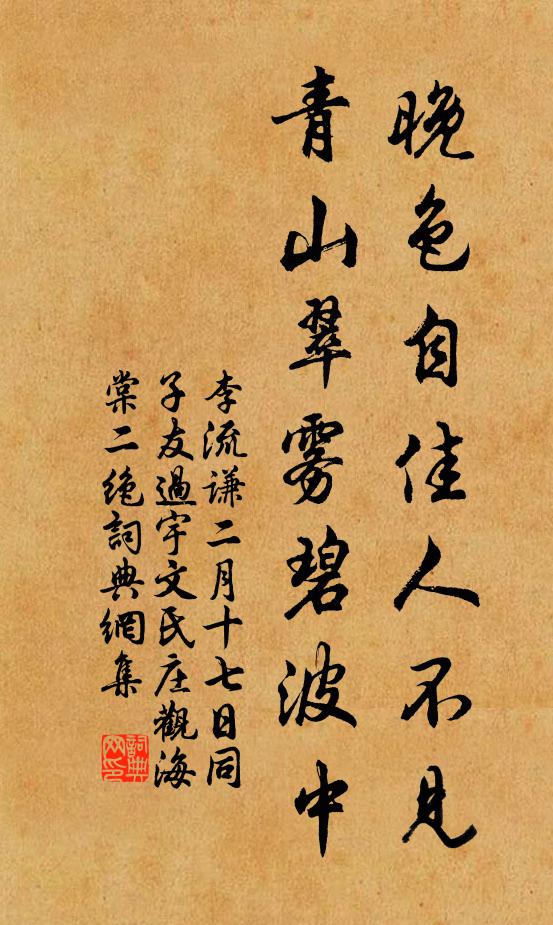 晚色自佳人不見
青山翠雾碧波中
李流谦二月十七日同
子友過宇文氏庄觀海
棠二绝詞典網集
詞典
网印